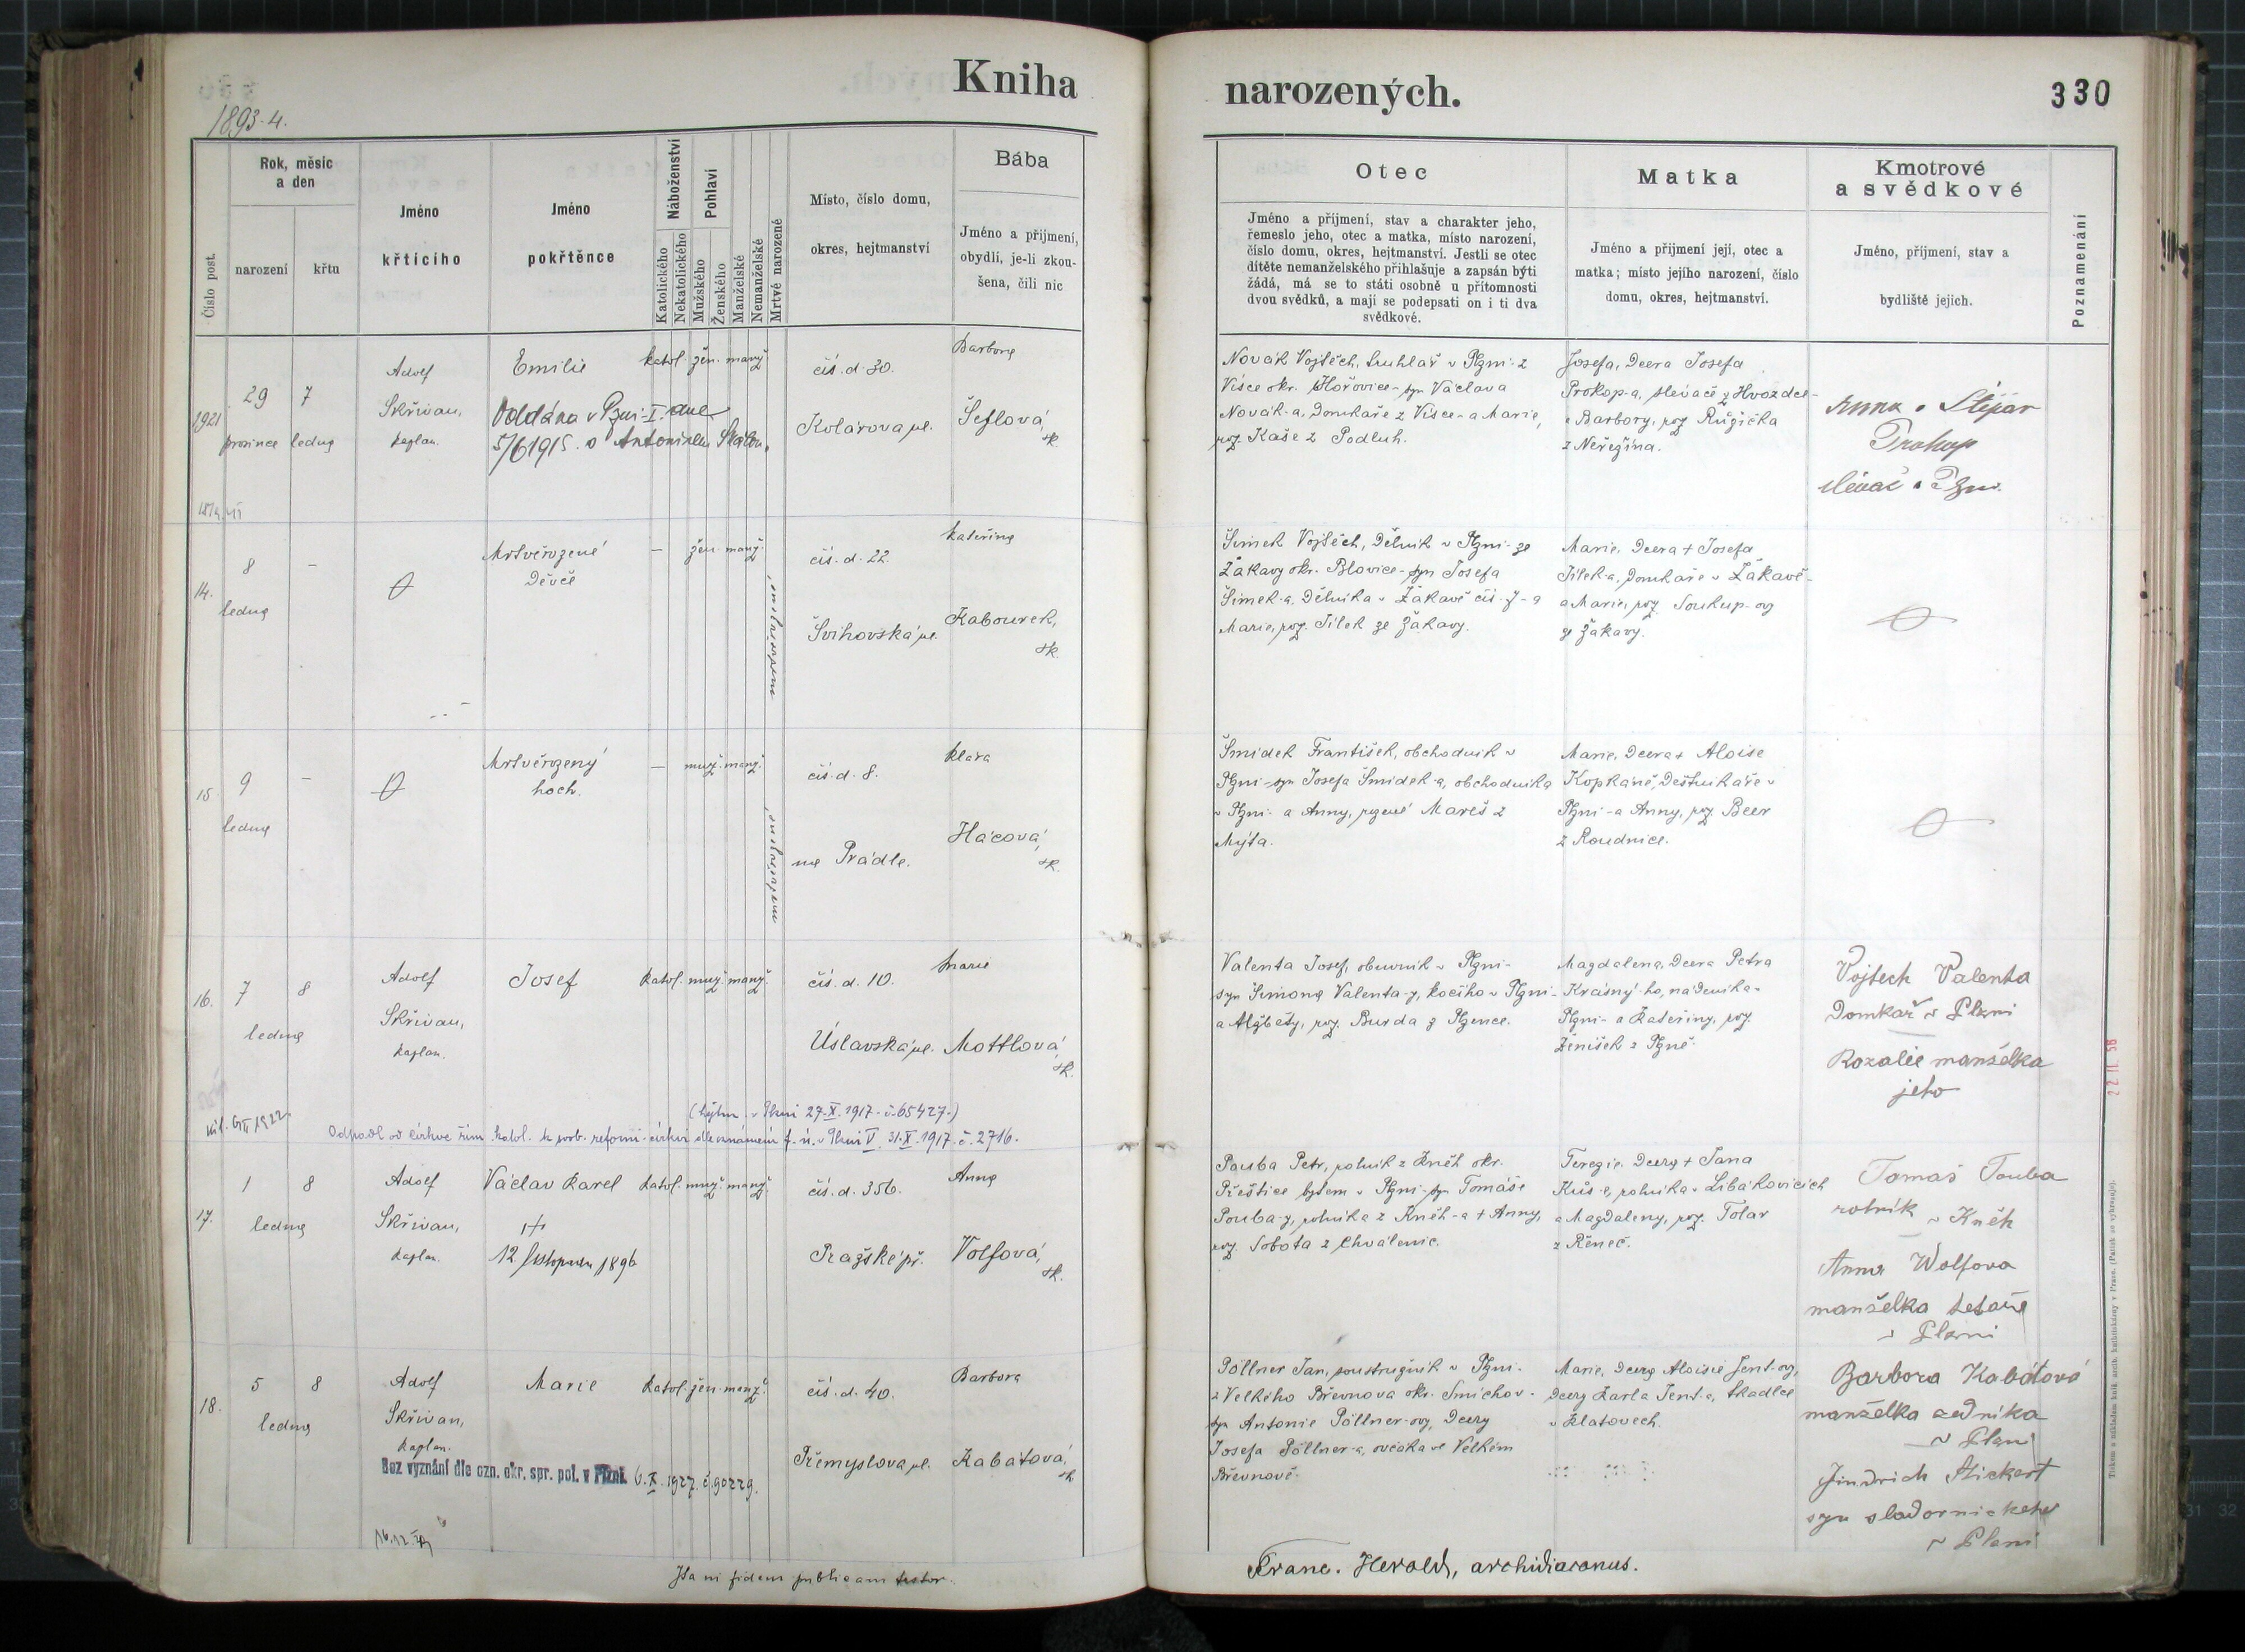 Kniha
narozených.
330
1893-4.
Číslo post.
Rok, měsíc
a den
narození
křtu
Jméno
křtícího
Jméno
pokřtěnce
Náboženství
Katolického
Nekatolického
Pohlaví
Mužského
Ženského
Manželské
Nemanželské
Mrtvě narozené
Místo, číslo domu,
okres, hejtmanství
Bába
Jméno a přijmení,
obydlí, je-li zkou-
šena, čili nic
Otec
Jméno a příjmení, stav a charakter jeho,
řemeslo jeho, otec a matka, místo narození,
číslo domu, okres, hejtmanství. Jestli se otec
dítěte nemanželského přihlašuje a zapsán býti
žádá, má se to státi osobně u přítomnosti
dvou svědků, a mají se podepsati on i ti dva
svědkové.
Matka
Jméno a přijmení její, otec a
matka; místo jejího narození, číslo
domu, okres, hejtmanství.
Kmotrové
a svědkové
Jméno, příjmení, stav a
bydliště jejich.
Poznamenání
1921
29 7
prosince ledna
Adolf
Skřivan,
kaplan.
Emilie
Oddána v Plzni-I. dne
5/6 1915. s Antonínem
katol. žen. manž.
čís. d. 30.
Kolárova ul.
Barbora
Šeflová,
zk.
Novák Vojtěch, truhlář v Plzni z
Visce okr. Hořovice - syn Václava
Novák-a, domkáře z Visce - a Marie,
roz. Kaše z Podluh.
Josefa, dcera Josefa
Prokop-a, slévače z Hvozdce
a Barbory, roz. Růžička
z Neřežína.
Prokop
slévač v Plzni
14.
8 -
ledna
Mrtvěrozené
děvče
- žen. manž.
mrtvěrozené
čís. d. 22.
Švihovská ul.
Kateřina
Kabourek,
zk.
Šimek Vojtěch, dělník v Plzni - ze
Žákavy okr. Blovice - syn Josefa
Šimek-a, dělníka v Žákavě čís. 7 - a
Marie, roz. Jílek ze Žákavy.
Marie, dcera + Josefa
Jílek-a, domkáře v Žákavě -
a Marie, roz. Soukup-ovy
ze Žákavy.
15.
9 -
ledna
Mrtvěrozený
hoch.
- muž. manž.
mrtvěrozený
čís. d. 8.
na Prádle.
Klára
Hácová,
zk.
Šmídek František, obchodník v
Plzni - syn Josefa Šmídek-a, obchodníka
v Plzni - a Anny, rozené Mareš z
Mýta.
Marie, dcera + Aloise
Kopkáně, deštníkáře v
Plzni - a Anny, roz. Beer
z Roudnice.
16.
7 8
ledna
Adolf
Skřivan,
kaplan.
Josef
katol. muž. manž.
čís. d. 10.
Úslavská ul.
Marie
Mottlová,
zk.
Valenta Josef, obuvník v Plzni -
syn Šimona Valenta-y, kočího v Plzni -
a Alžběty, roz. Burda z Plzence.
Magdalena, dcera Petra
Krásný-ho, nádeníka v
Plzni - a Kateřiny, roz.
Ženíšek z Plzně.
Vojtech Valenta
Domkař v Plzni
Rozalie manželka
jeho
22. II. 56
v Plzni 27. X. 1917 - č. 65427.)
Odpadl od církve řím. katol. k f. ú. v Plzni V. 31. X. 1917. č. 2716.
17.
1 8
ledna
Adolf
Skřivan,
kaplan.
Václav Karel
+
12 listopadu 1896
katol. muž. manž.
čís. d. 356.
Pražské př.
Anna
Volfová,
zk.
Pouba Petr, rolník z Kněh okr.
Přeštice bytem v Plzni - syn Tomáše
Pouba-y, rolníka z Kněh - a + Anny,
roz. Sobota z Chválenic.
Terezie, dcera + Jana
Kůs-a, rolníka v Libákovicích
a Magdaleny, roz. Tolar
z Řeneč.
Tomaš Pouba
rolník v Kněh
Anna Wolfova
manželka
v Plzni
18.
5 8
ledna
Adolf
Skřivan,
kaplan.
Marie
katol. žen. manž.
čís. d. 40.
Přemyslova ul.
Barbora
Kabátová,
zk.
Pöllner Jan, soustružník v Plzni -
z Velkého Břevnova okr. Smíchov -
syn Antonie Pöllner-ovy, dcery
Josefa Pöllner-a, ovčáka ve Velkém
Břevnově.
Marie, dcera Aloisie Jent-ovy,
dcery Karla Jent-a, tkadlce
v Klatovech.
Barbora Kabátová
manželka zedníka
v Plzni
Jindrich
syn
v Plzni
Bez vyznání dle ozn. okr. spr. pol. v Plzni. 6. X. 1927. č. 90229.
Ita in fidem publicam testor.
Franc. Herold, archidiaconus.